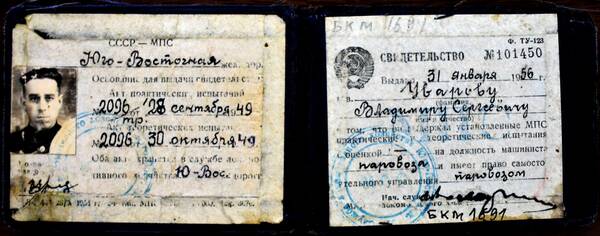 СССР — МПС
Юго-Восточная жел. дор.
Основание для выдачи свидетельс
Акт практических испытаний
2096 28 сентября 1949
тр.
Акт теоретических испытан
2096 30 октября 1949
Оба акта хранятся в службе локомо
тивного хозяйства Ю-Вос дороги
БКМ 1691
Ф. ТУ-123
СВИДЕТЕЛЬСТВО № 101450
Выдано 31 января 1956
Уварову
Владимиру Сергеевичу
в том, что он выдержал установленные МПС
практические теоретические испытания
на должность машиниста
паровоза и имеет право самосто
ятельного управления паровозом
Нач. службы
БКМ 1691